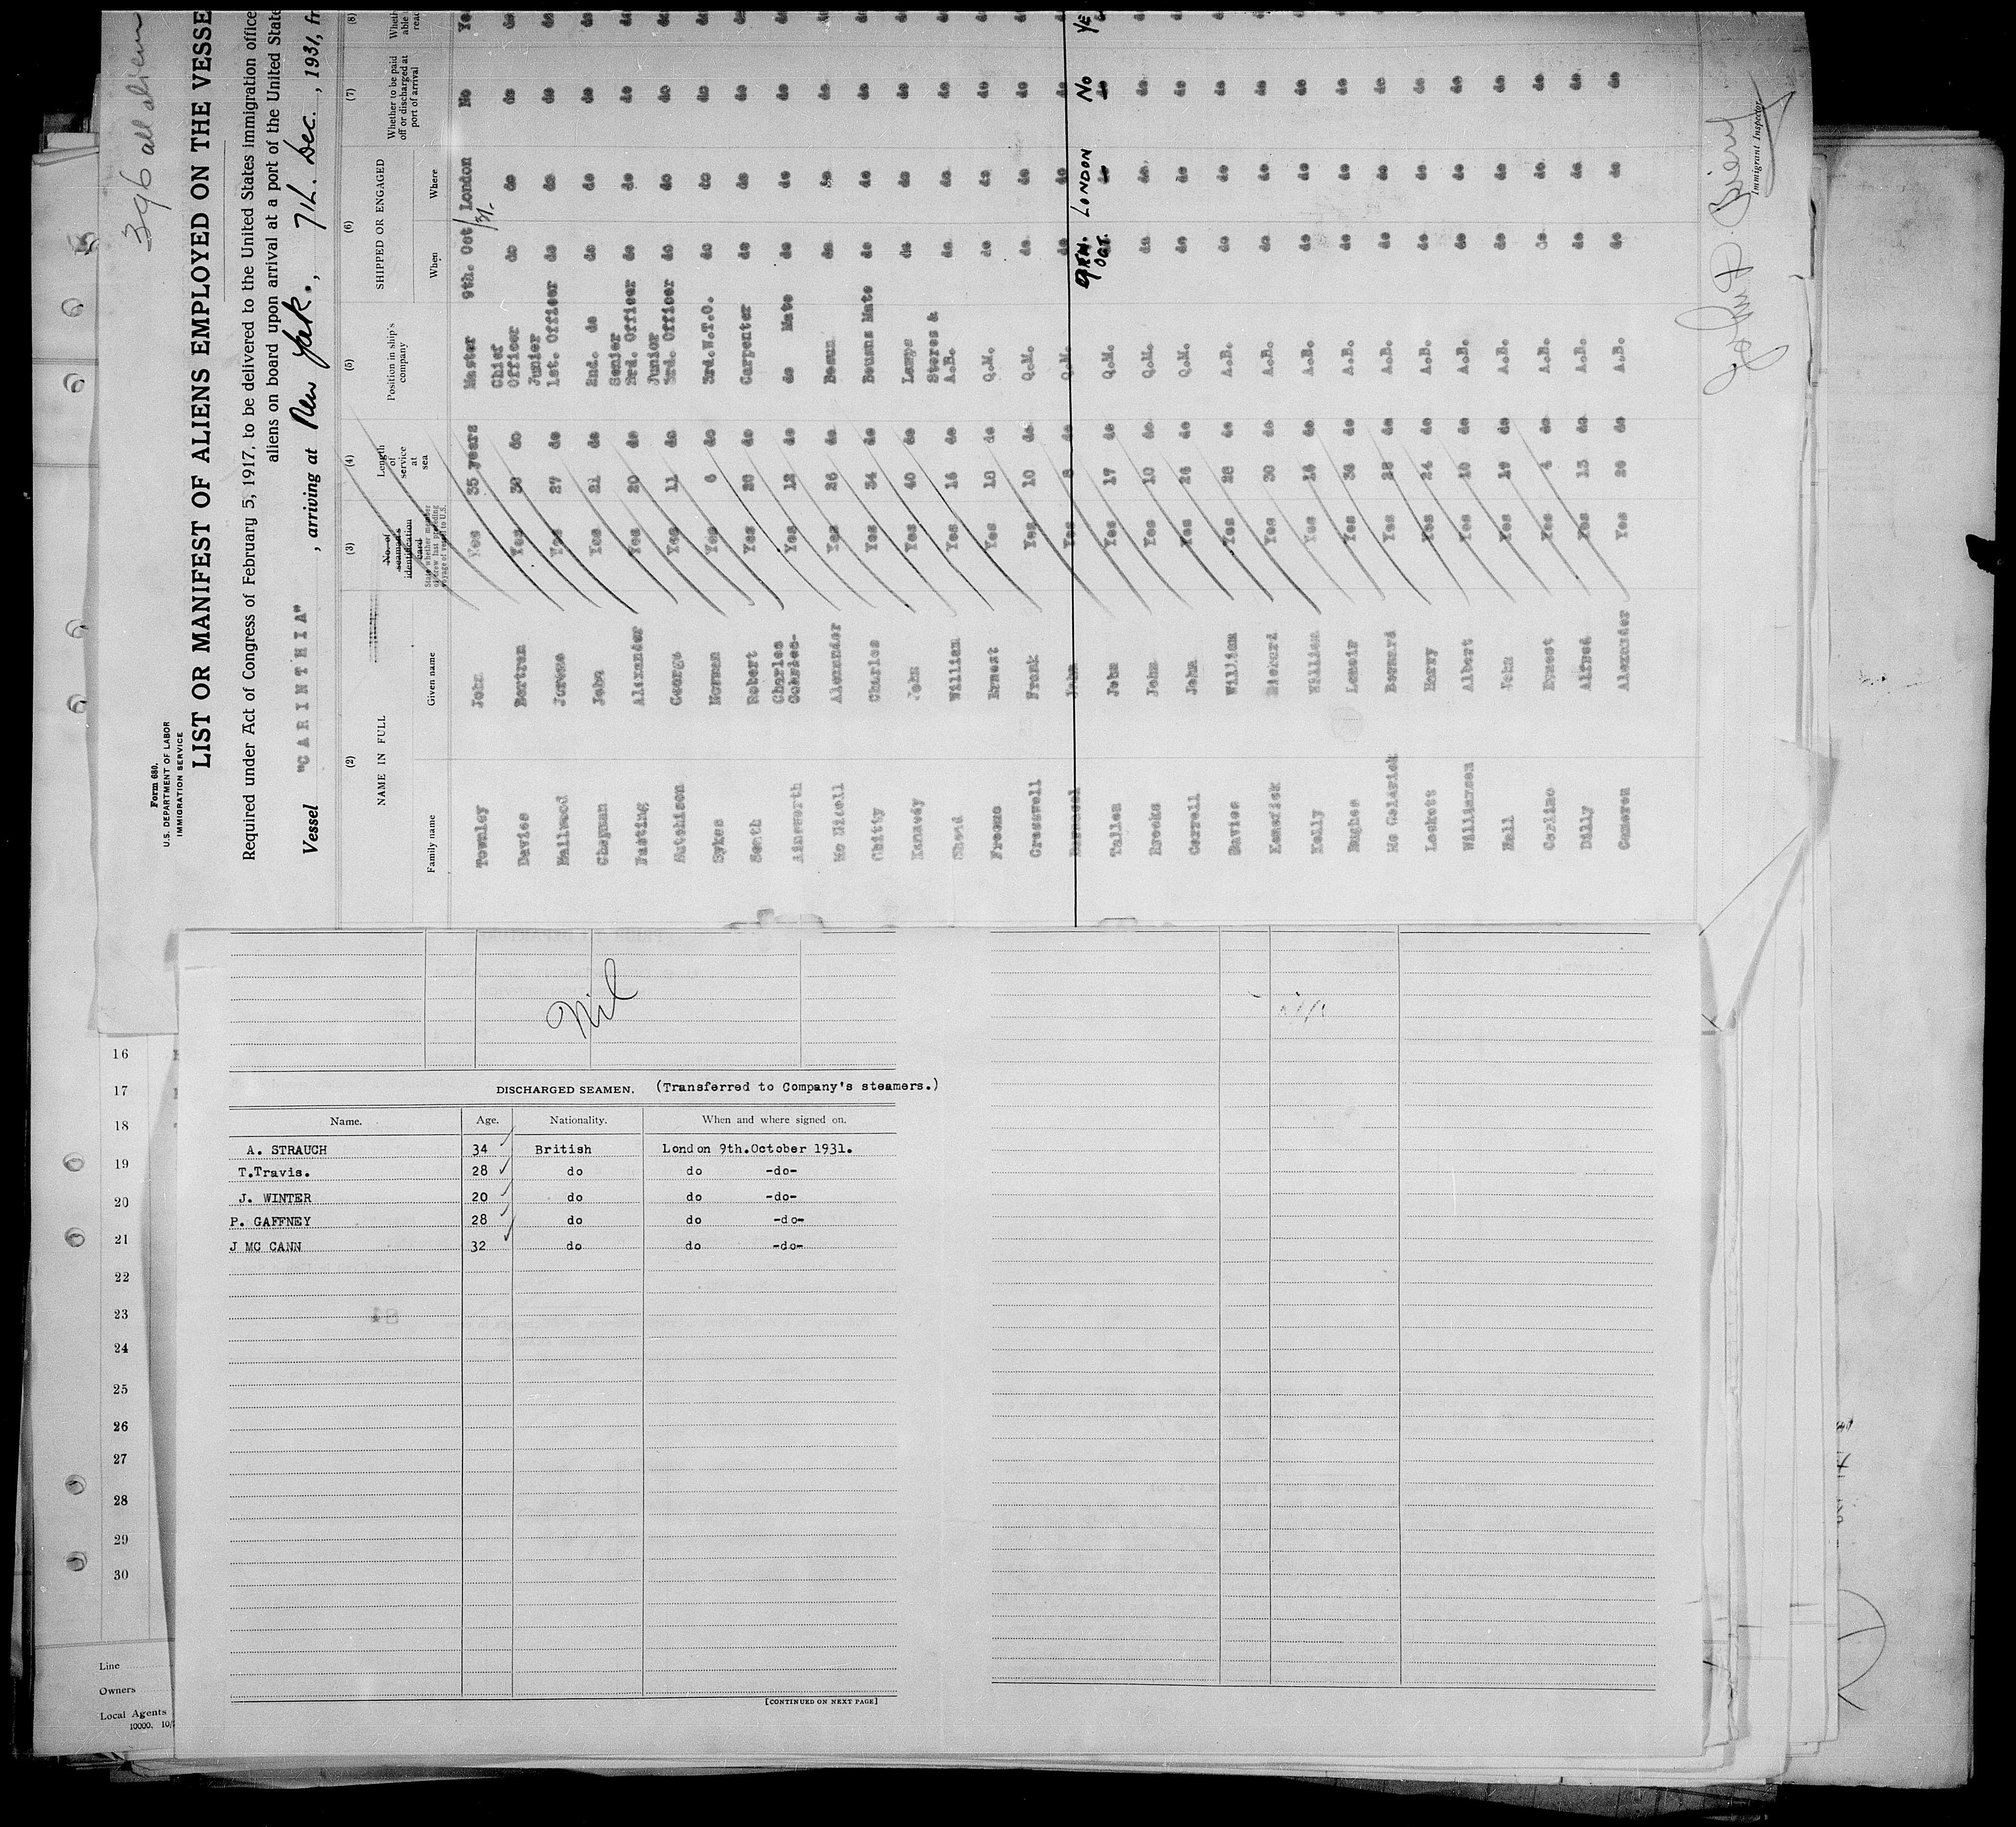 396 all aliens
Form 680.
U. S. DEPARTMENT OF LABOR
IMMIGRATION SERVICE
LIST OR MANIFEST OF ALIENS EMPLOYED ON THE VESSE
Required under Act of Congress of February 5, 1917, to be delivered to the United States immigration office
aliens on board upon arrival at a port of the United State
Vessel "CARINTHIA" , arriving at New York. , 7th. Dec. , 1931, fr
(2) (3) (4) (5) (6) (7) (8)
NAME IN FULL No. of seaman's identification card State whether member of crew last preceding voyage of vessel to U.S. Length of service at sea Position in ship's company SHIPPED OR ENGAGED Whether to be paid off or discharged at port of arrival
Family name Given name When Where
Townley John Yes 35 years Master 9th. Oct/31- London No
Davies Bertram Yes 30 do Chief Officer do do do do
Hallwood Yes 27 do Junior 1st. Officer do do do do
Chapman John Yes 21 do 2nd. do do do do do
Alexander Yes 20 do Senior 3rd. Officer do do do do
Hutchison George Yes 11 do Junior 3rd. Officer do do do do
Sykes Norman Yes 6 do 3rd.W.T.O. do do do do
Robert Yes 28 do Carpenter do do do do
Ainsworth Charles Yes 12 do do Mate do do do do
Alexander Yes 26 do Bosun do do do do
Chitty Charles Yes 34 do Bosuns Mate do do do do
Kennedy John Yes 40 do Lamps do do do do
William Yes 16 do Stores & A.B. do do do do
Ernest Yes 18 do Q.M. do do do do
Cresswell Frank Yes 10 do Q.M. do do do do
John Yes 8 do Q.M. do do do do
Tallon John Yes 17 do Q.M. 9TH. OCT. LONDON No
Brooks John Yes 10 do Q.M. do do do do
Carroll John Yes 26 do Q.M. do do do do
Davies William Yes 28 do A.B. do do do do
Kenefick Richard Yes 30 do A.B. do do do do
Kelly William Yes 16 do A.B. do do do do
Hughes Yes 34 do A.B. do do do do
Mc Goldrick Bernard Yes 28 do A.B. do do do do
Leckett Harry Yes 24 do A.B. do do do do
Williamson Albert Yes 10 do A.B. do do do do
Hall John Yes 19 do A.B. do do do do
Ernest Yes 4 do A.B. do do do do
Dilly Alfred Yes 13 do A.B. do do do do
Cameron Alexander Yes 20 do A.B. do do do do
Immigrant Inspector
Nil
DISCHARGED SEAMEN. (Transferred to Company's steamers.)
Name. Age. Nationality. When and where signed on.
A. STRAUCH 34 British London 9th.October 1931.
T.Travis. 28 do do -do-
J. WINTER 20 do do -do-
P. GAFFNEY 28 do do -do-
J MC CANN 32 do do -do-
[CONTINUED ON NEXT PAGE]
16
17
18
19
20
21
22
23
24
25
26
27
28
29
30
Line
Owners
Local Agents
10000. 10/